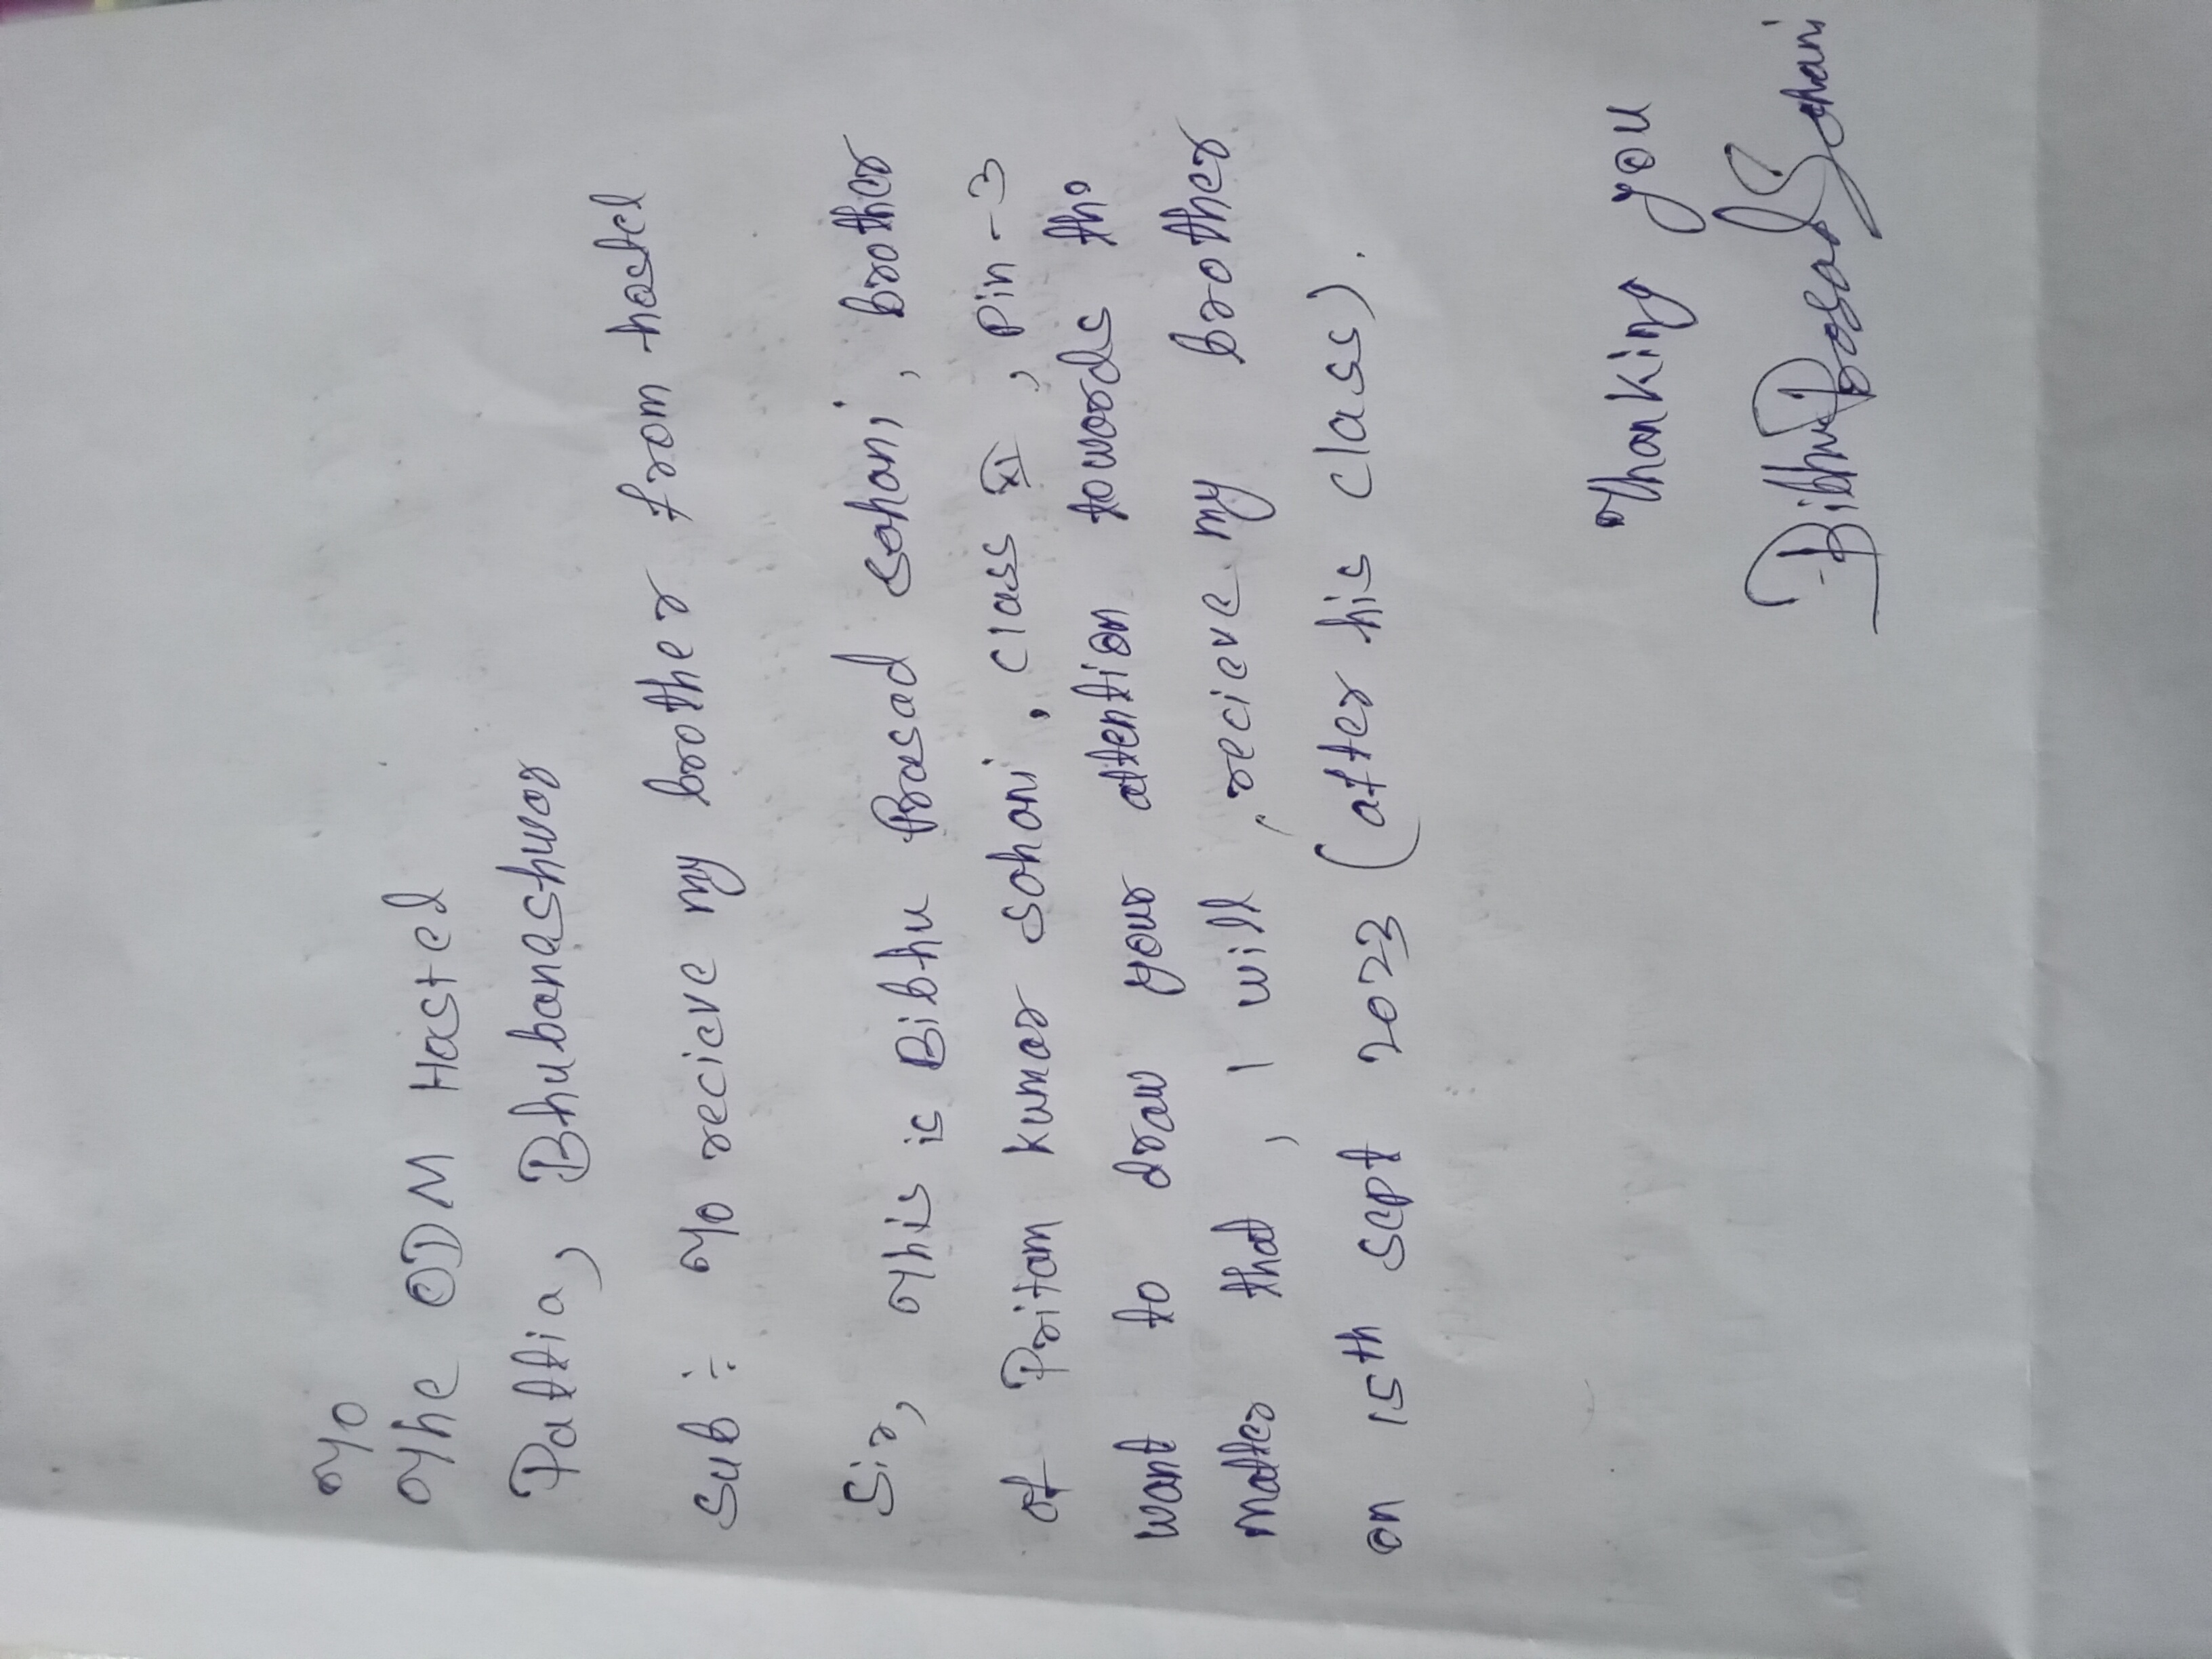 To
The ODM Hastel
Pattia, Bhubaneashwar
Sub : To recieve my brother from hostel
Sir, This is Bibhu Prasad Sahani, brother
of Pritam Kumar Sahani, Class XI, Pin - 3
want to draw your attention towards the
matter that, I will, recieve my brother
on 15th Sept 2023 (after his class).
Thanking you
Bibhu Prasad Sahani